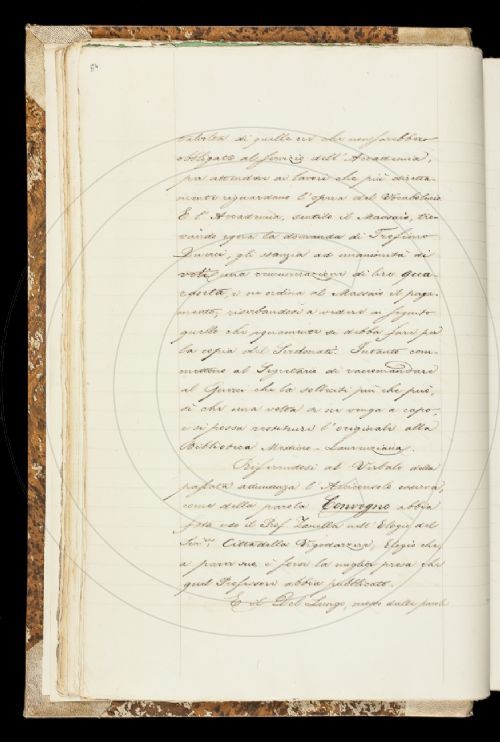 84
talvolta di quelle ore che non sarebbero
obbligate al servizio dell'Accademia,
per attendere ai lavori che più diretta-
mente riguardano l'opera del Vocabolario.
E l'Accademia, sentito il Massaio, tro-
vando equa la domanda di
gli stanzia ad unanimità di
voti una remunerazione di lire qua-
ranta, e ne ordina al Massaio il paga-
mento, riserbandosi a vedere in seguito
quello che equamente si debba fare per
la copia del Intanto com-
mettono al Segretario di raccomandare
al che la solleciti più che può,
sì che una volta a ne venga a capo,
e si possa restituire l'originale alla
Biblioteca Mediceo-Laurenziana.
Riferendosi al Verbale della
passata adunanza l'Arciconsolo osserva,
come della parola Convegno abbia
fatto uso il Prof. Zanella nell'Elogio del
Sen.re Cittadella Vigodarzere, Elogio che,
a parer suo è forse la miglior prosa che
quel Professore abbia pubblicato.
E il Del Lungo, mosso dalle parole